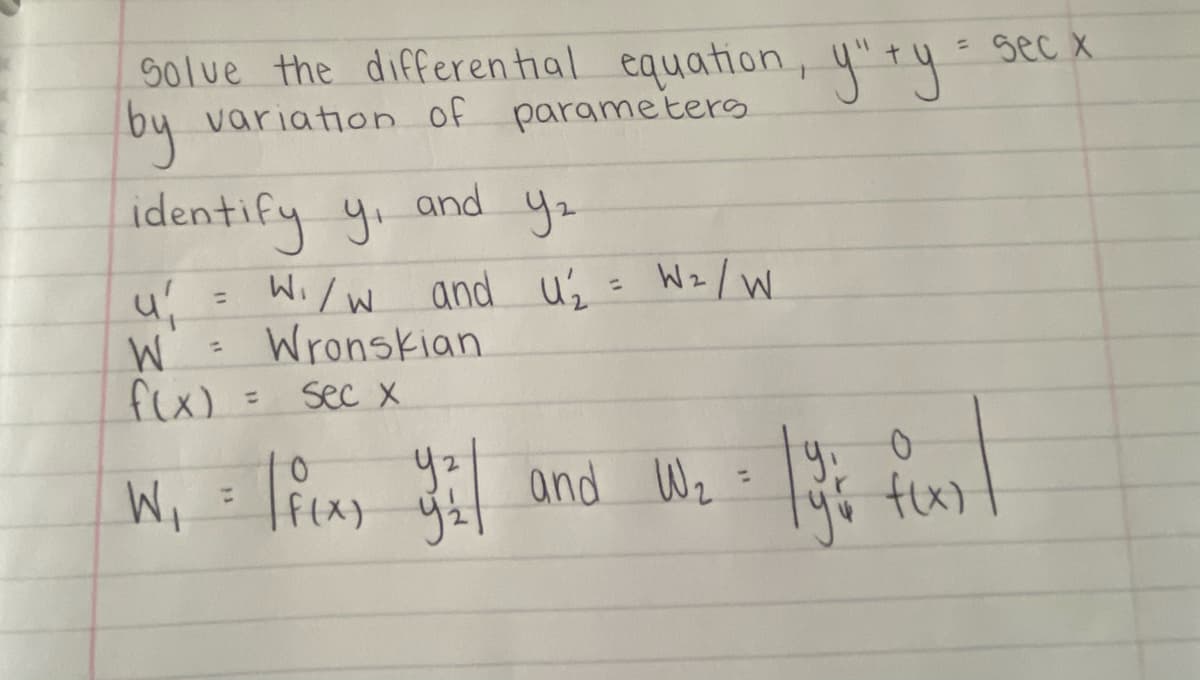 Solve the differential equation, y" + y = sec x
by variation of parameters
identify y₁ and y₂
u₁' = W₁/W and u₂' = W₂/W
W = Wronskian
f(x) = sec x
W₁ = |0 y₂| and W₂ = |y₁ 0|
|f(x) y₂'| |y₁' f(x)|